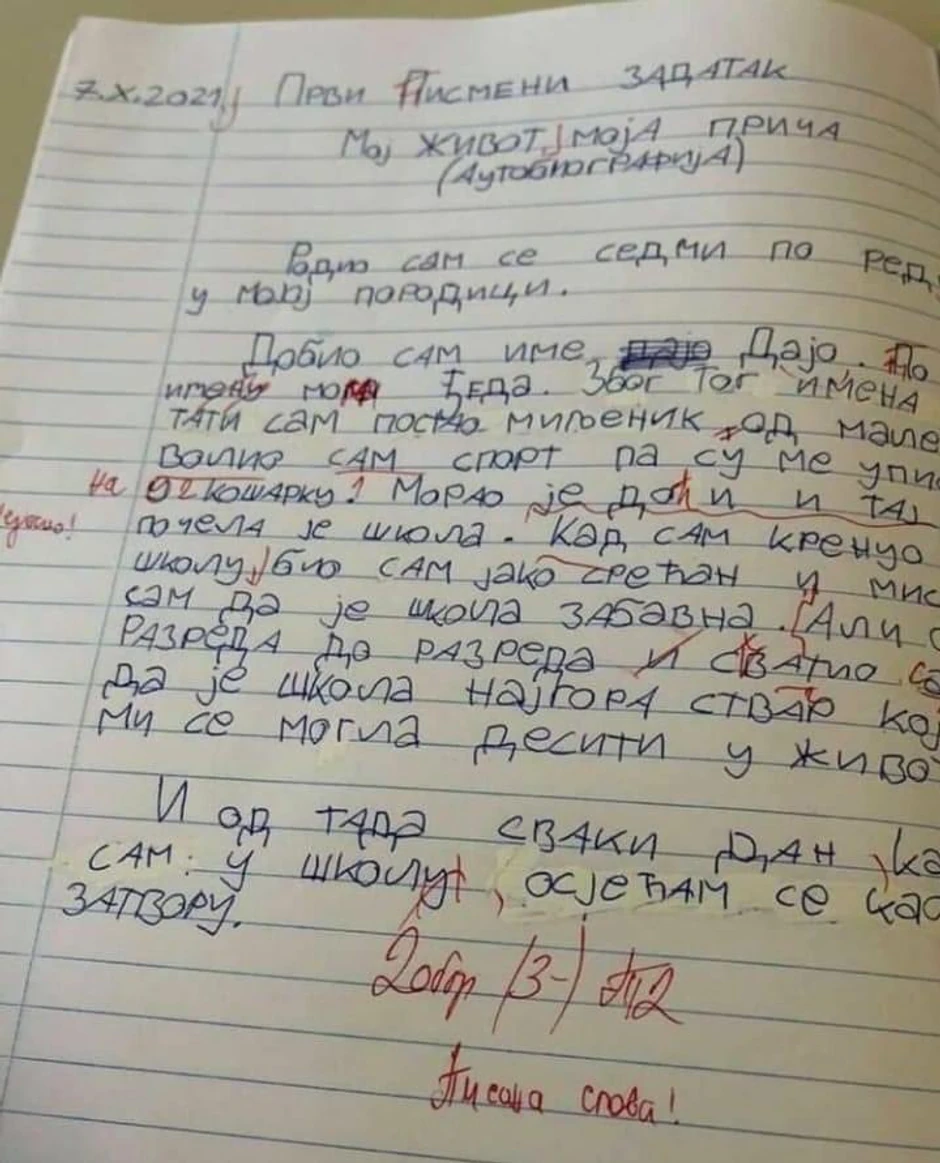 7.X.2021. Први Писмени ЗАДАТАК
Мој живот, моја прича
(Аутобиографија)
Родио сам се седми по реду
у мојој породици.
Добио сам име Дајо. По
имену мога ђеда. Због тог имена
тати сам постао миљеник од мале
Волио сам спорт па су ме упис
на кошарку. Морао је доћи и тај
почела је школа. Кад сам кренуо
школу, био сам јако срећан и мис
сам да је школа забавна. Али о
разреда до разреда и сватио са
да је школа најгора ствар кој
ми се могла десити у живо
И од тада сваки дан, ка
сам у школу, осјећам се као
затвору.
Добар (3-)
Писана слова!